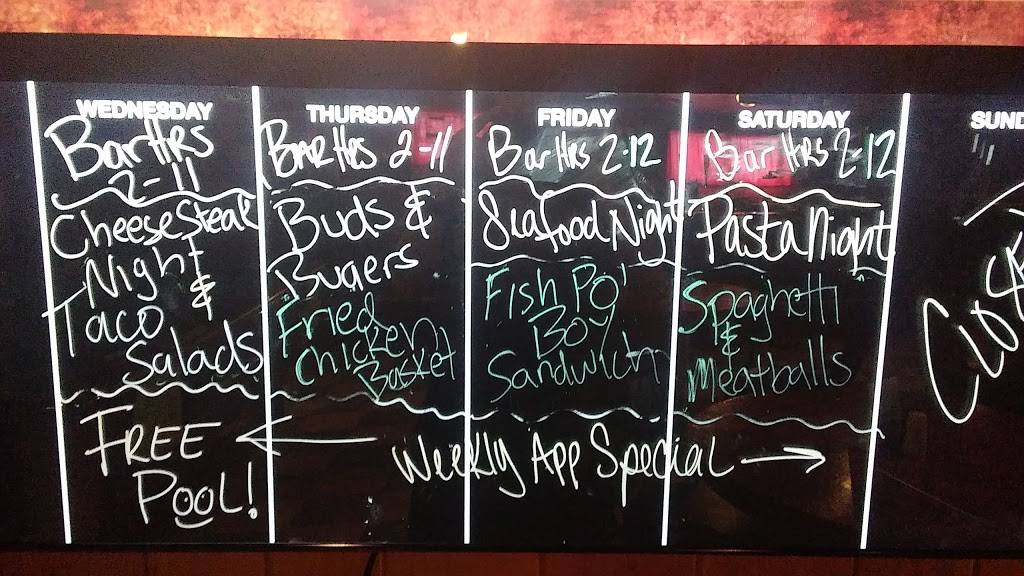 WEDNESDAY
Bar Hrs
2-11
Cheesesteak
Night
&
Taco
Salads
FREE
POOL!
THURSDAY
Bar Hrs 2-11
Buds &
Bugers
Fried
Chicken
Basket
FRIDAY
Bar Hrs 2-12
Seafood Night
Fish Po'
Boy
Sandwich
SATURDAY
Bar Hrs 2-12
Pasta Night
Spaghetti
&
Meatballs
Weekly App Special
SUND